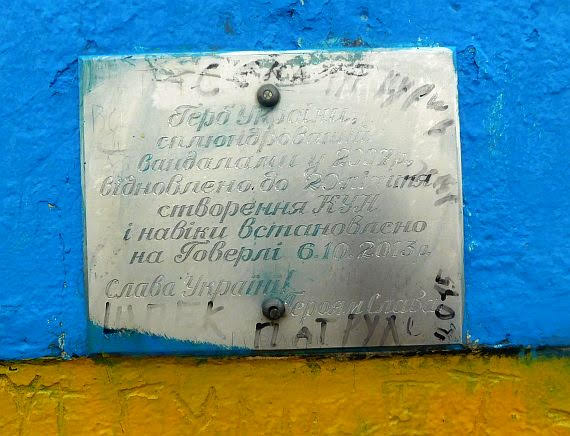 Герб України,
сплюндрований
вандалами у 2007р,
відновлено до 20ліття
створення КУН
і навіки встановлено
на Говерлі 6.10.2013 р.
Слава Україні!
Героям Слава!
ПАТРУЛЬ